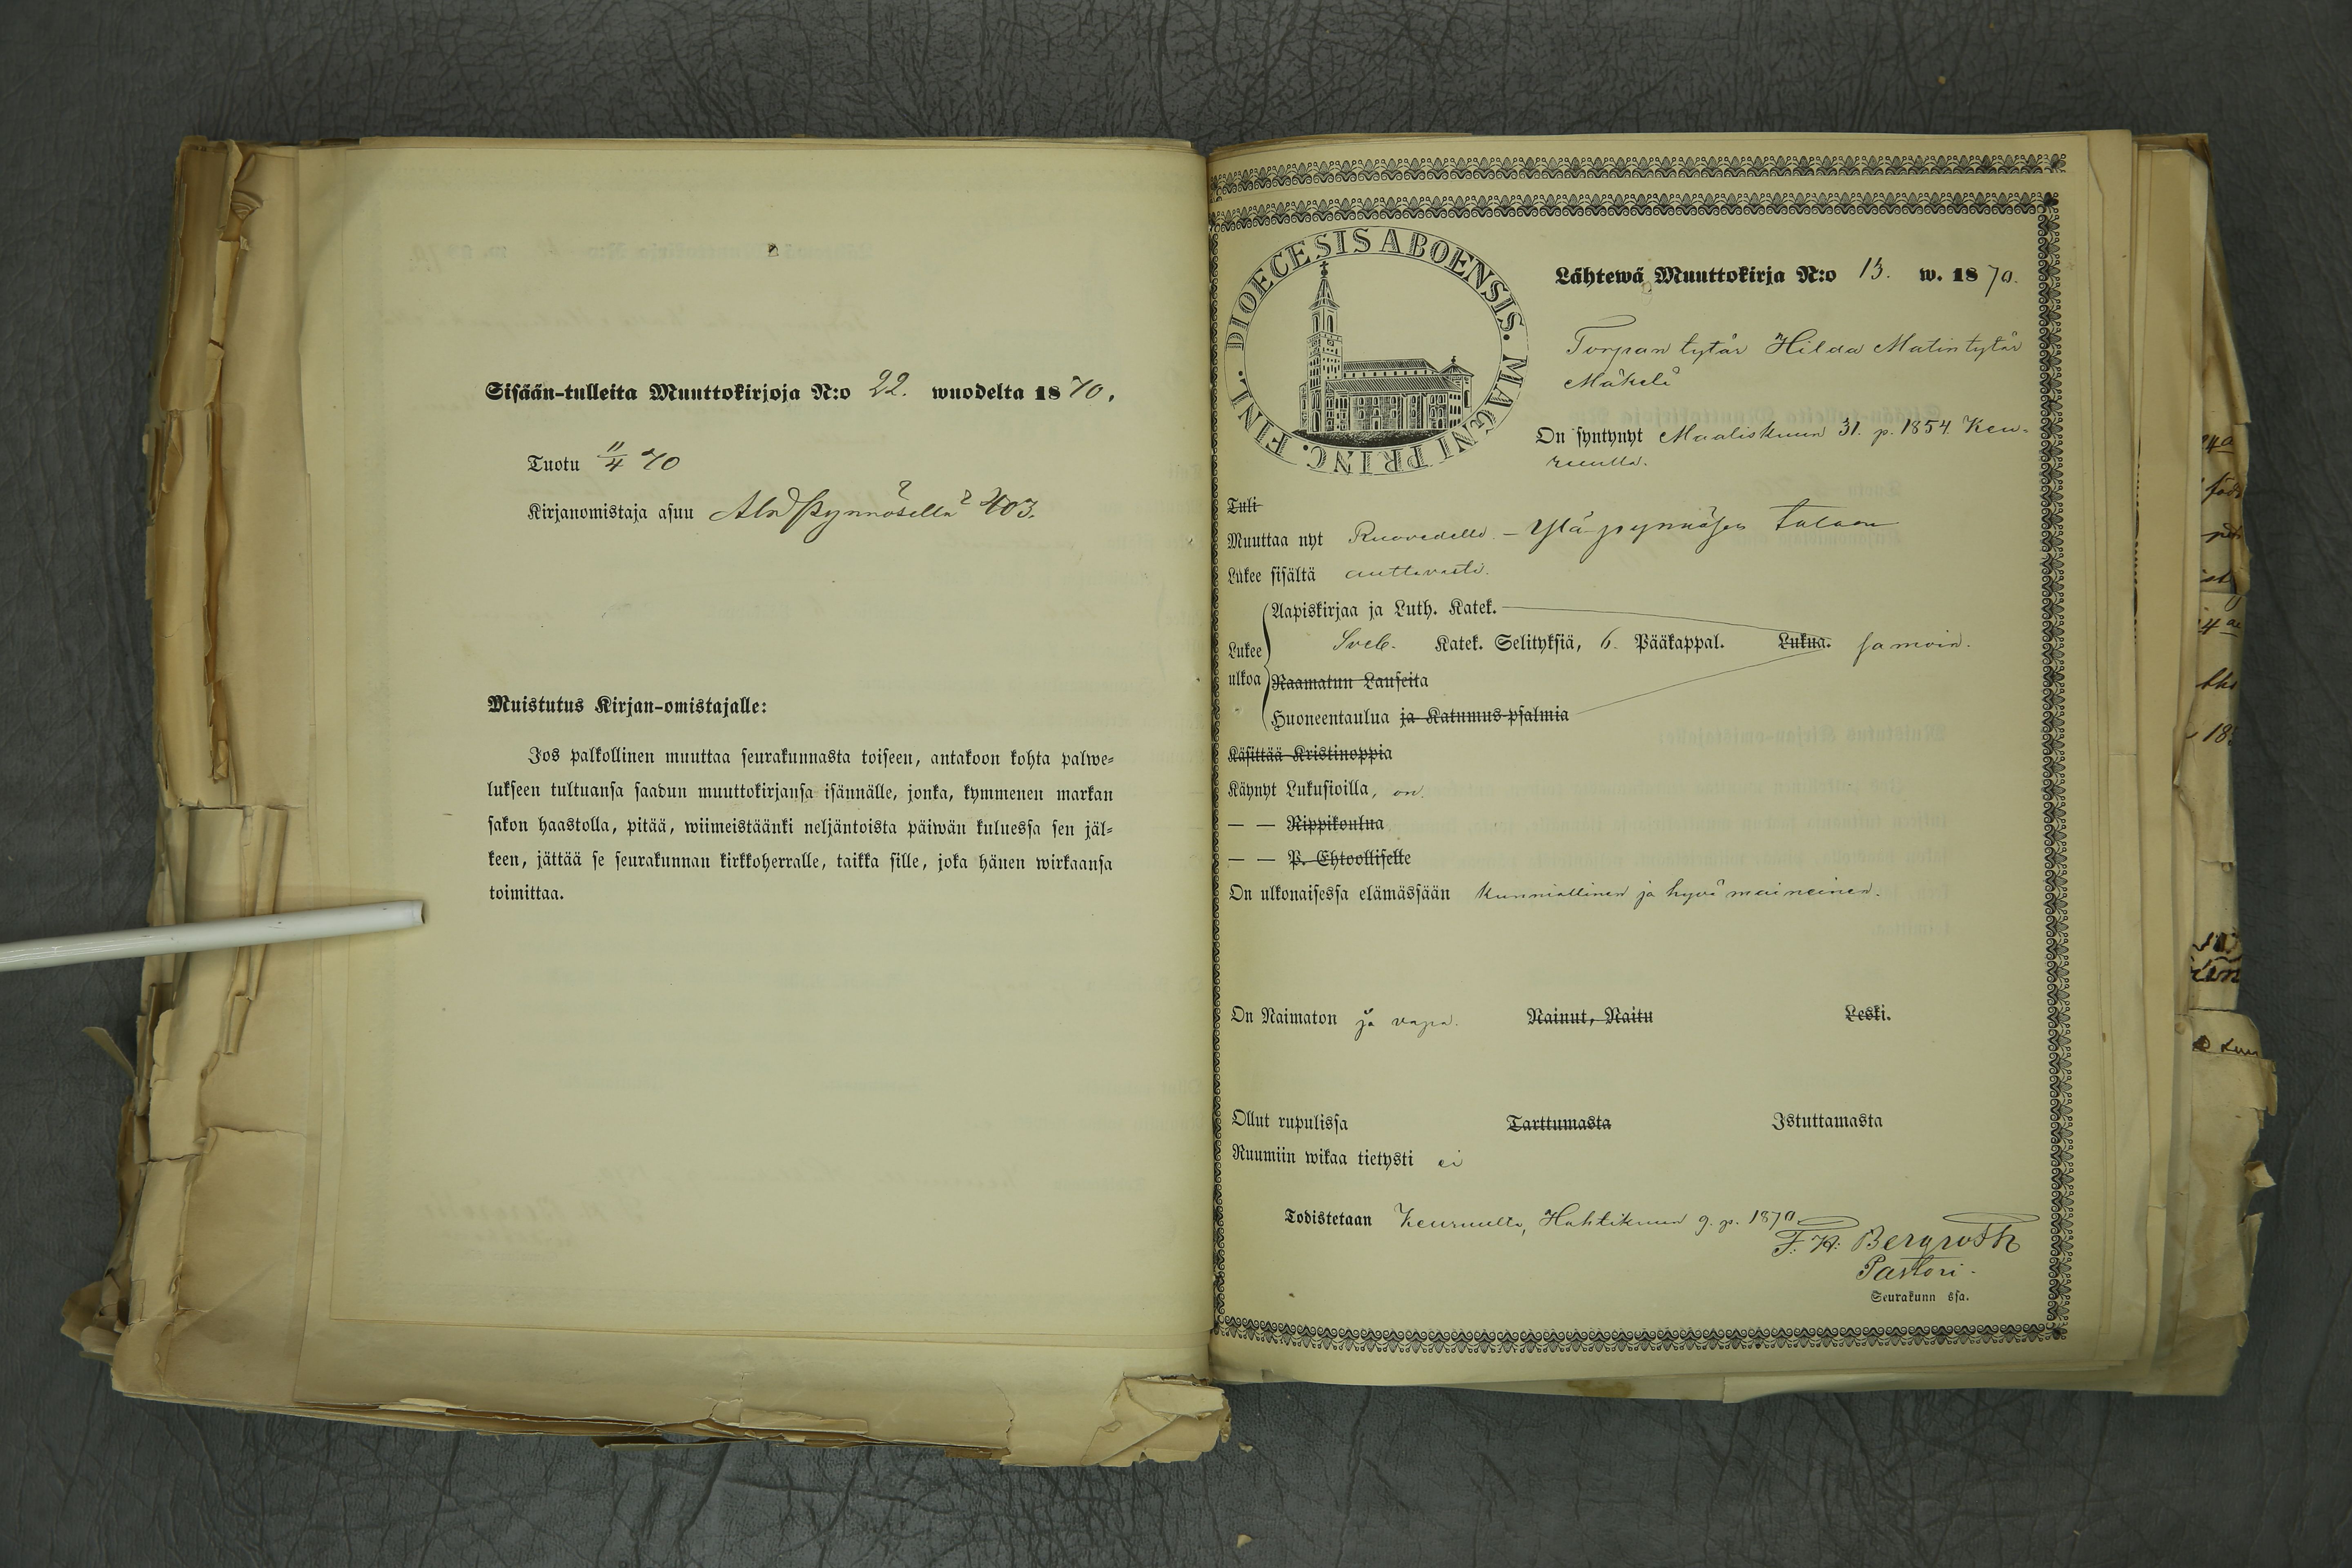 Sisään-tulleita Muuttokirjoja N:o 22. wuodelta 1870.
Tuotu 11/4 70
Kirjanomistaja asuu 403.
Muistutus Kirjan-omistajalle:
Jos palkollinen muuttaa seurakunnasta toiseen, antakoon kohta palwe-
lukseen tultuansa saadun muuttokirjansa isännälle, jonka, kymmenen markan
sakon haastolla, pitää, wiimeistäänki neljäntoista päiwän kuluessa sen jäl-
keen, jättää se seurakunnan kirkkoherralle, taikka sille, joka hänen wirkaansa
toimittaa.
DIOECESIS ABOENSIS. MAGNI PRINC. FINL.
Lähtewä Muuttokirja N:o 13. w. 1870.
Torpan tytär Hilda Matintytär
Mäkelä
On syntynyt Maaliskuun 31. p. 1854. Keu-
ruulla.
Tuli
Muuttaa nyt Ruovedelle. – Yläpynnösen taloon
Lukee sisältä auttavasti.
Aapiskirjaa ja Luth. Katek.
Lukee ulkoa
Sveb. Katek. Selityksiä, 6. Pääkappal. Lukua. samoin.
Raamatun Lauseita
Huoneentaulua ja Katumus-psalmia
Käsittää Kristinoppia
Käynyt Lukusioilla, on.
— — Rippikoulua
— — P. Ehtoolliselle
On ulkonaisessa elämässään kunniallinen ja hyvä maineinen.
On Naimaton ja vapa. Nainut, Naitu Leski.
Ollut rupulissa Tarttumasta Istuttamasta
Ruumiin wikaa tietysti ei
Todistetaan Keuruulla, Huhtikuun 9. p. 1870.
F. H. Bergroth
Pastori.
Seurakunn ssa.